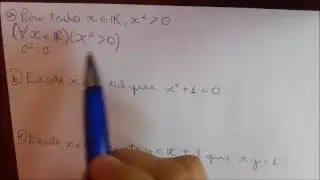 a) Para todo x∈ℝ, x²>0
(∀x∈ℝ)(x²>0)
0²=0
b) Existe x tal que x²+1=0
Existe x∈ tal que x.y=1